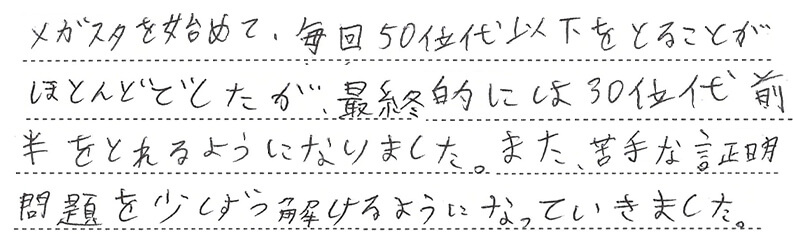 メガスタを始めて、毎回50位代以下をとることが
ほとんどでしたが、最終的には30位代前
半をとれるようになりました。また、苦手な証明
問題を少しずつ解けるようになっていきました。